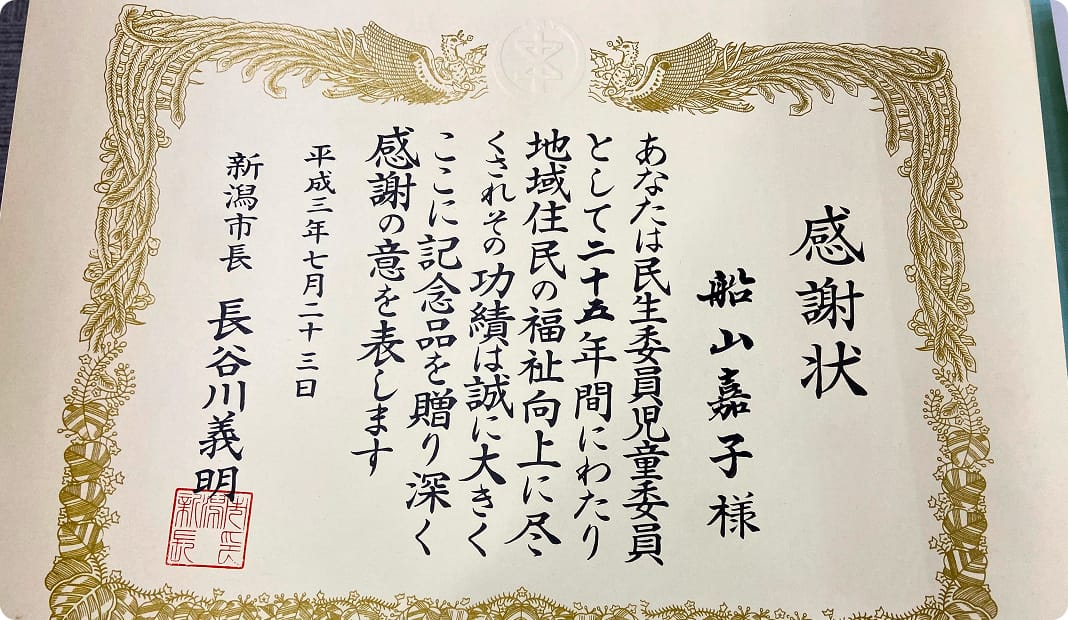 感謝状
船山嘉子様
あなたは民生委員児童委員
として二十五年間にわたり
地域住民の福祉向上に尽
くされその功績は誠に大きく
ここに記念品を贈り深く
感謝の意を表します
平成三年七月二十三日
新潟市長 長谷川義明